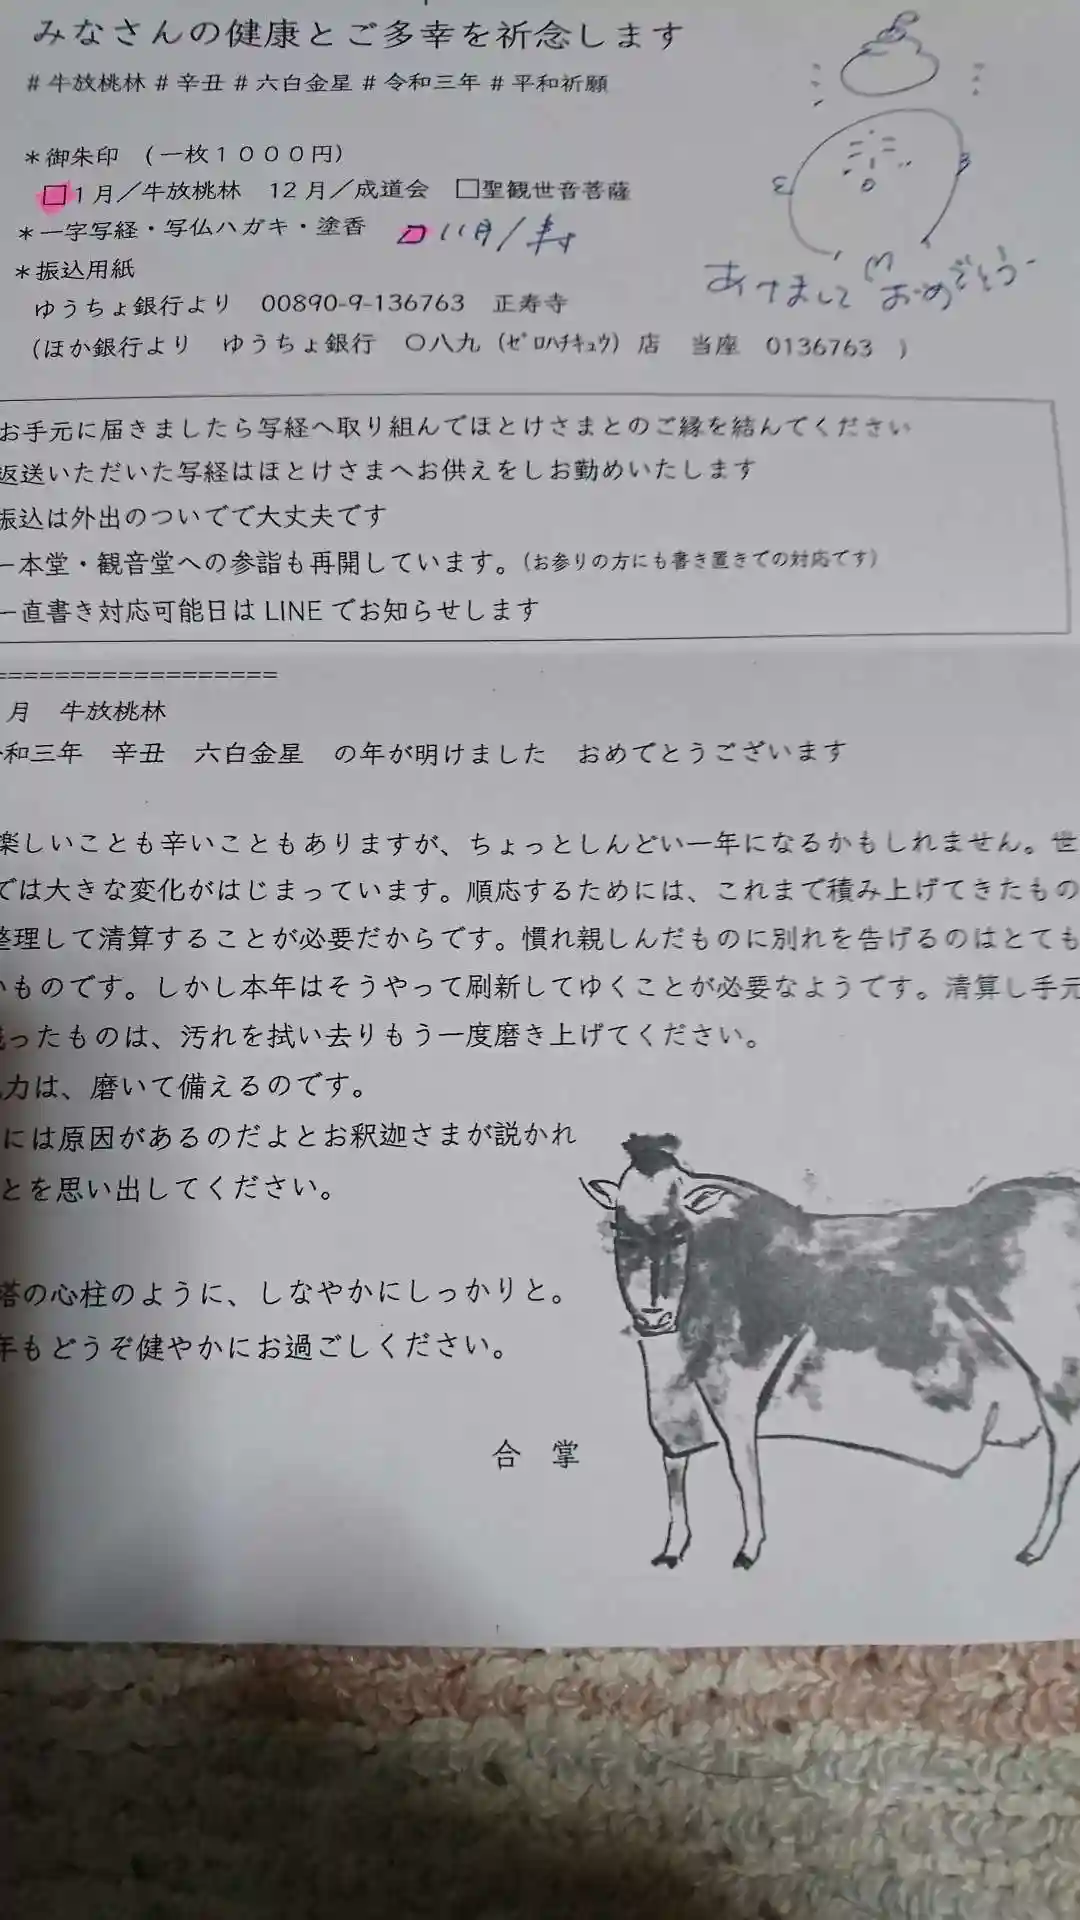 みなさんの健康とご多幸を祈念します
#牛放桃林 #辛丑 #六白金星 #令和三年 #平和祈願
*御朱印 (一枚1000円)
□1月/牛放桃林 12月/成道会 □聖観世音菩薩
*一字写経・写仏ハガキ・塗香 □11月/寿
あけまして おめでとう
*振込用紙
ゆうちょ銀行より 00890-9-136763 正寿寺
(ほか銀行より ゆうちょ銀行 〇八九(ゼロハチキュウ)店 当座 0136763 )
お手元に届きましたら写経へ取り組んでほとけさまとのご縁を結んでください
返送いただいた写経はほとけさまへお供えをしお勤めいたします
振込は外出のついでで大丈夫です
ー本堂・観音堂への参詣も再開しています。(お参りの方にも書き置きでの対応です)
ー直書き対応可能日はLINEでお知らせします
==================
月 牛放桃林
和三年 辛丑 六白金星 の年が明けました おめでとうございます
楽しいことも辛いこともありますが、ちょっとしんどい一年になるかもしれません。世
では大きな変化がはじまっています。順応するためには、これまで積み上げてきたもの
整理して清算することが必要だからです。慣れ親しんだものに別れを告げるのはとても
いものです。しかし本年はそうやって刷新してゆくことが必要なようです。清算し手元
残ったものは、汚れを拭い去りもう一度磨き上げてください。
力は、磨いて備えるのです。
には原因があるのだよとお釈迦さまが説かれ
とを思い出してください。
塔の心柱のように、しなやかにしっかりと。
年もどうぞ健やかにお過ごしください。
合 掌